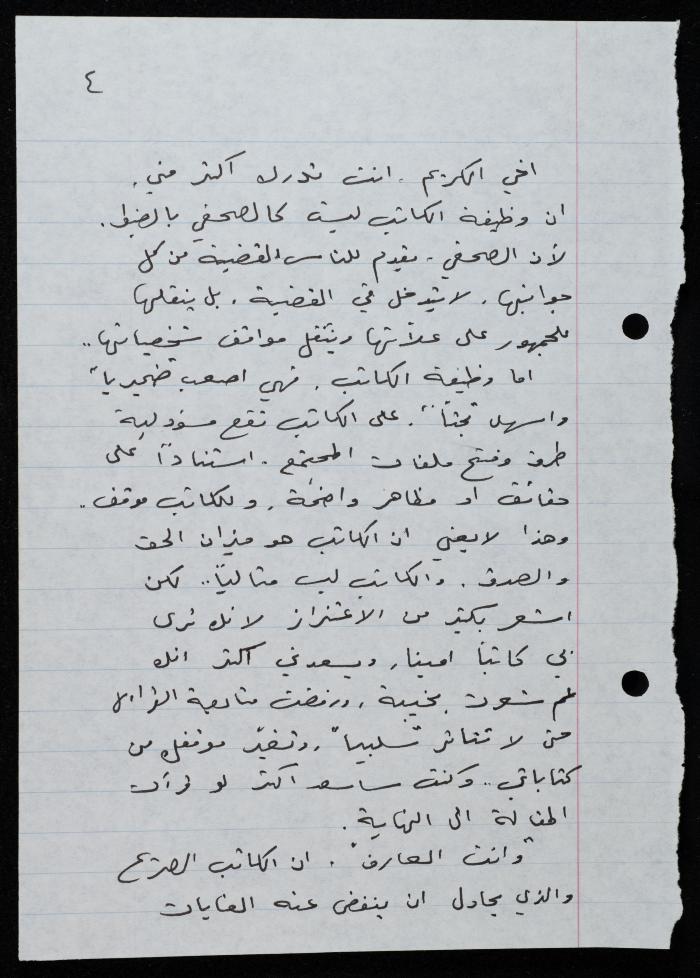 ٤
اخي الكريم . انت تدرك اكثر مني .
ان وظيفة الكاتب ليست كالصحفي بالضبط .
لأن الصحفي . يقدم للناس القضية من كل
جوانبها . لا يتدخل في القضية . بل ينقلها
للجمهور على علاّتها وينقل مواقف شخصياتها ..
اما وظيفة الكاتب . فهي اصعب "ضميريا"
واسهل "بحثاً" . على الكاتب تقع مسؤولية
طرق وفتح ملفات المجتمع . استناداً على
حقائق او مظاهر واضحة . وللكاتب موقف ..
وهذا لا يعني ان الكاتب هو ميزان الحق
والصدق . والكاتب ليس مثالياً .. لكن
اشعر بكثير من الاعتزاز لانك ترى
بي كاتباً امينا . ويسعدني اكثر انك
لم شعرت بخيبة . ورفضت متابعة القراءة
حتى لا تتأثر "سلبيا" . وتغيّر موقفك من
كتاباتي .. وكنت ساسعد اكثر لو قرأت
المقالة الى النهاية .
"وانت العارف" . ان الكاتب الصريح
والذي يحاول ان ينفض عنه الغايات